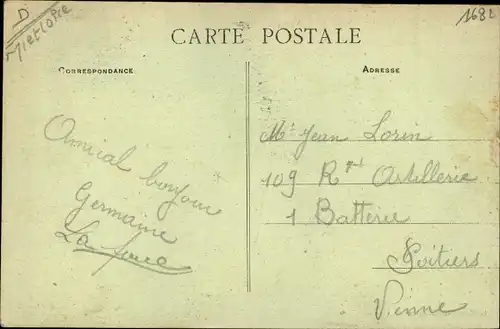 D
1682
CARTE POSTALE
CORRESPONDANCE
ADRESSE
Amical bonjour
Germaine
Mr Jean Lorin
109 Rgt Artillerie
1 Batterie
Poitiers
Vienne